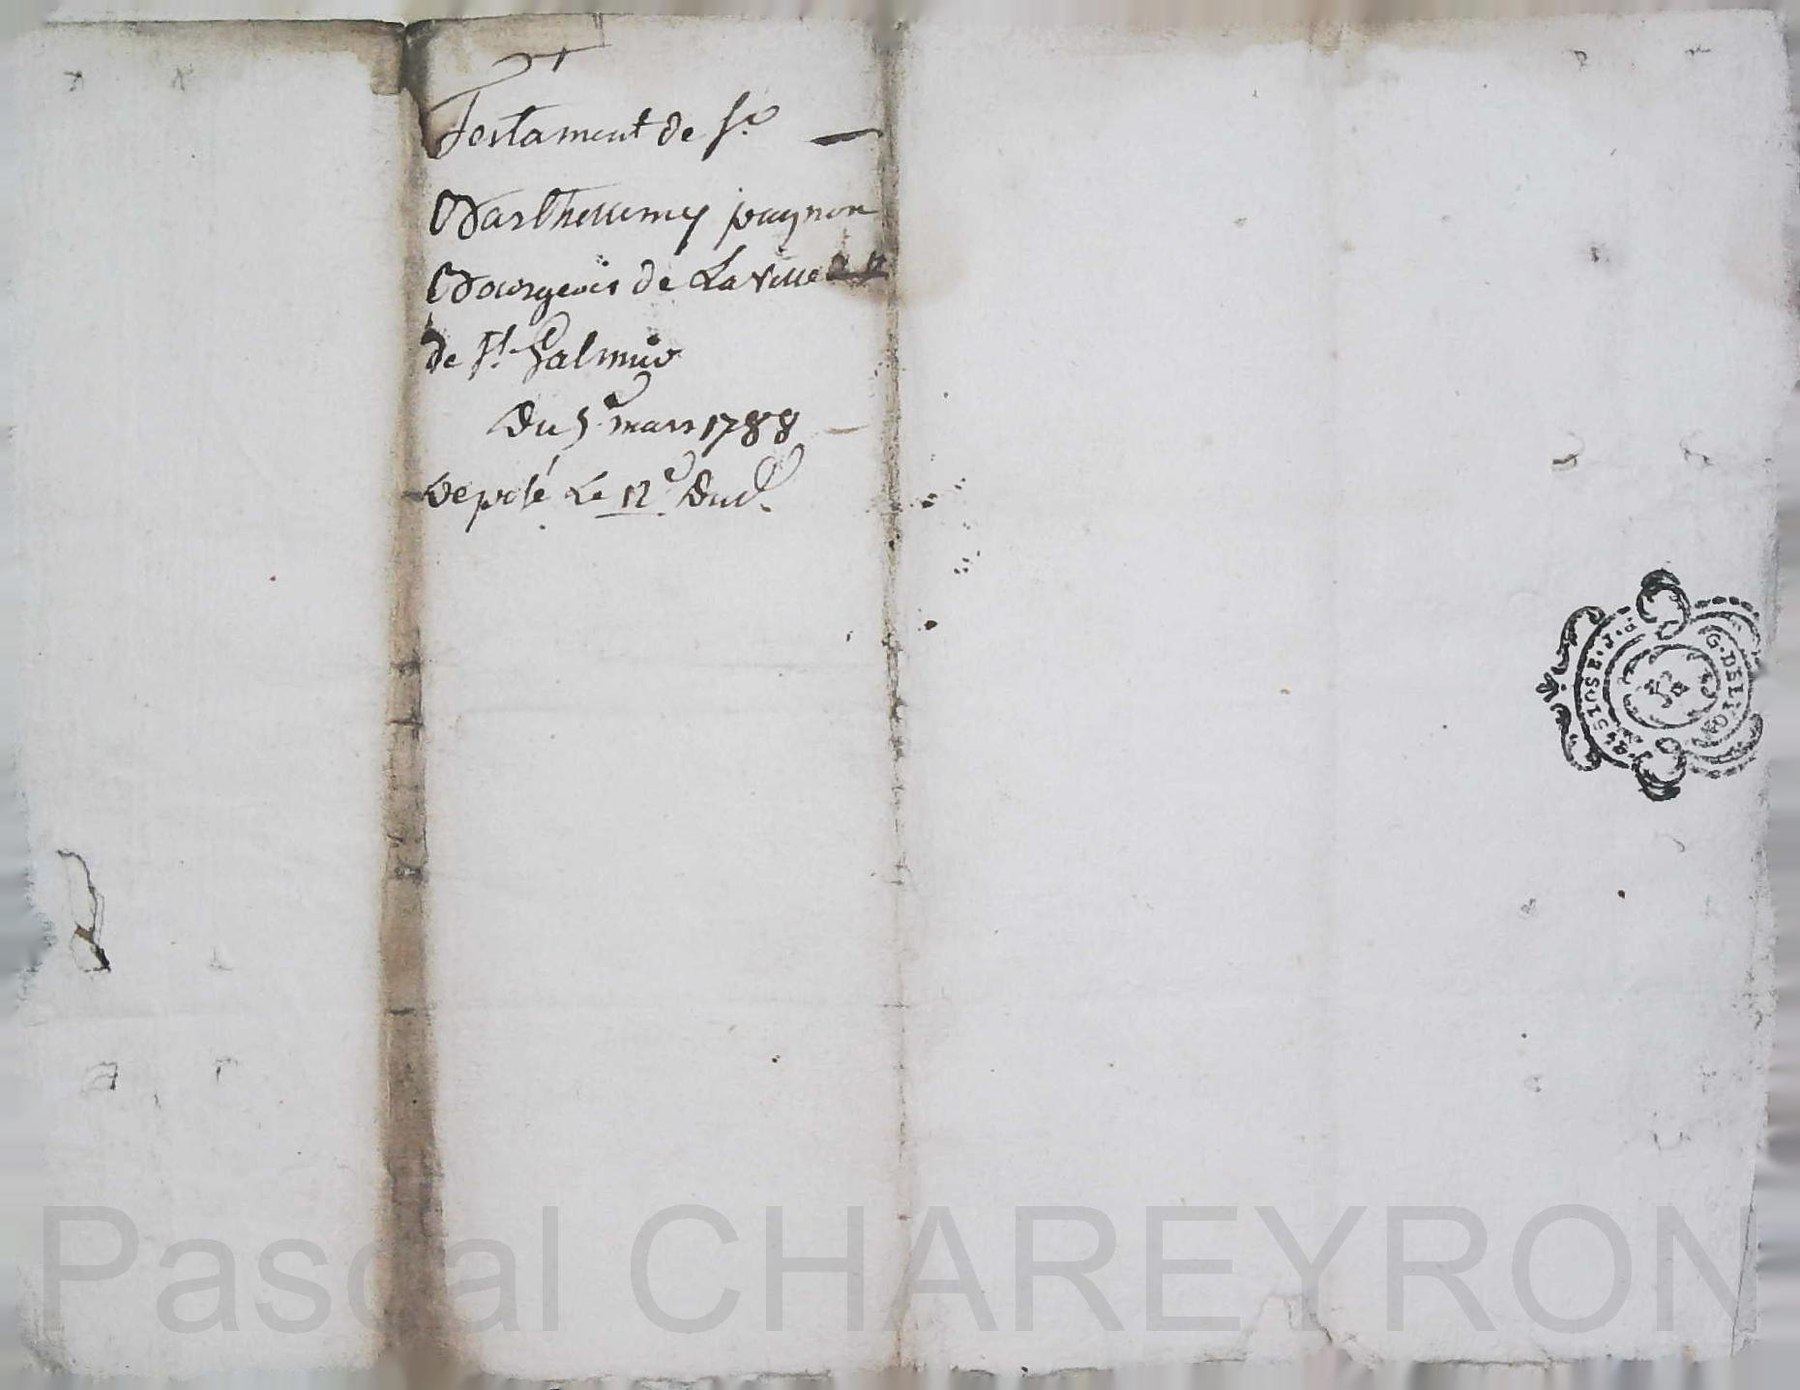 Testament de Sr
Barthellemy paignon
Bourgeois de La ville
de St. Galmier
Du 5e mars 1788
Deposé Le 12e Dud.
G. DE LYO
Pascal CHAREYRON